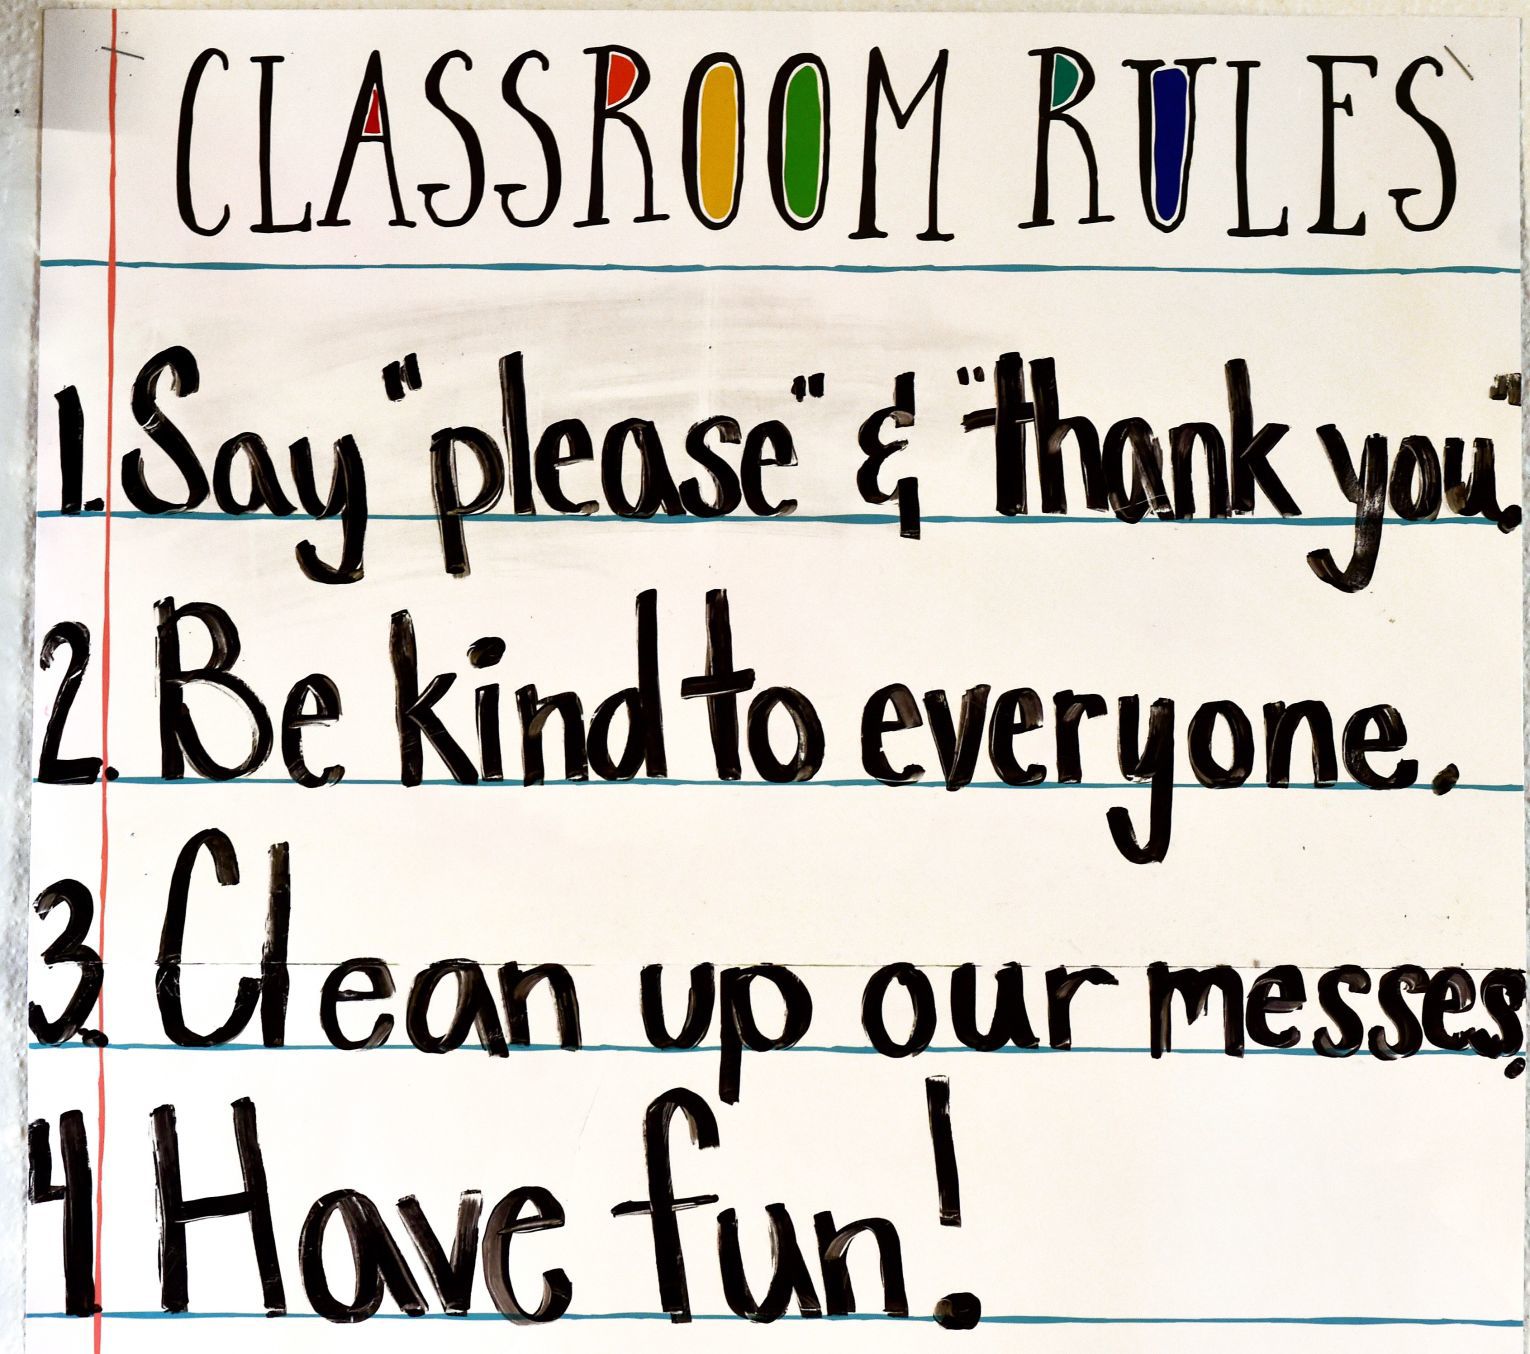 CLASSROOM RULES
1. Say "please" & "thank you".
2. Be kind to everyone.
3. Clean up our messes.
4. Have fun!